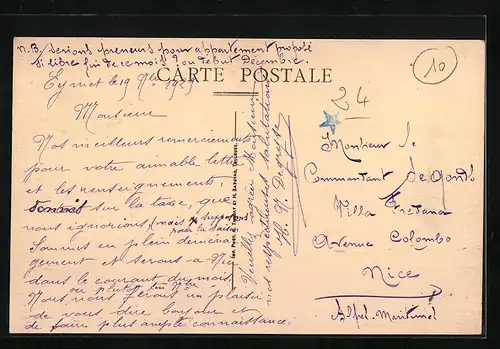 N.B. serions preneurs pour appartement proposé
si libre fin de ce mois ou début Décembre.
CARTE POSTALE
Eymet le 19
Monsieur
Nos meilleurs remerciements
pour votre aimable lettre
et les renseignements
sur la taxe, que
nous ignorions (mais supposions
pour la saison
Sommes en plein déména-
gement et serons à Nice
dans le courant du mois,
ou plutôt fin
Nous nous ferons un plaisir
de vous dire bonjour et
de faire plus ample connaissance.
Veuillez agréer Monsieur
nos respectueuses salutations
10
24
Monsieur le
Commandant de
Villa
Avenue Colombo
Nice
Alpes-Maritimes